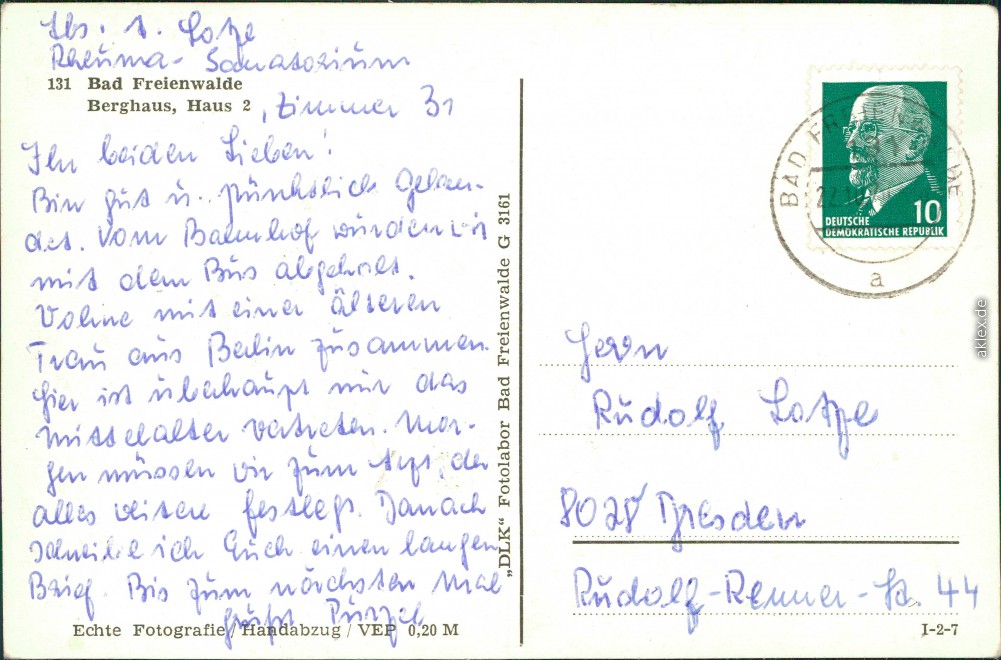 Abs. A. Lotze
Rheuma-Sanatorium
131 Bad Freienwalde
Berghaus, Haus 2
, Zimmer 31
Ihr beiden Lieben!
Bin gut u. pünktlich gelan-
det. Vom Bahnhof wurden wir
mit dem Bus abgeholt.
Wohne mit einer älteren
Frau aus Berlin zusammen.
Hier ist überhaupt nur das
Mittelalter vertreten. Mor-
gen müssen wir zum Arzt, der
alles weitere festlegt. Danach
schreibe ich Euch einen langen
Brief. Bis zum nächsten Mal
grüßt Putzel
Echte Fotografie / Handabzug / VEP 0,20 M
„DLK“ Fotolabor Bad Freienwalde G 3161
BAD FREIENWALDE
22.10.
a
10
DEUTSCHE
DEMOKRATISCHE REPUBLIK
Herrn
Rudolf Lotze
8028 Dresden
Rudolf-Renner-Str. 44
I-2-7
aklex.de